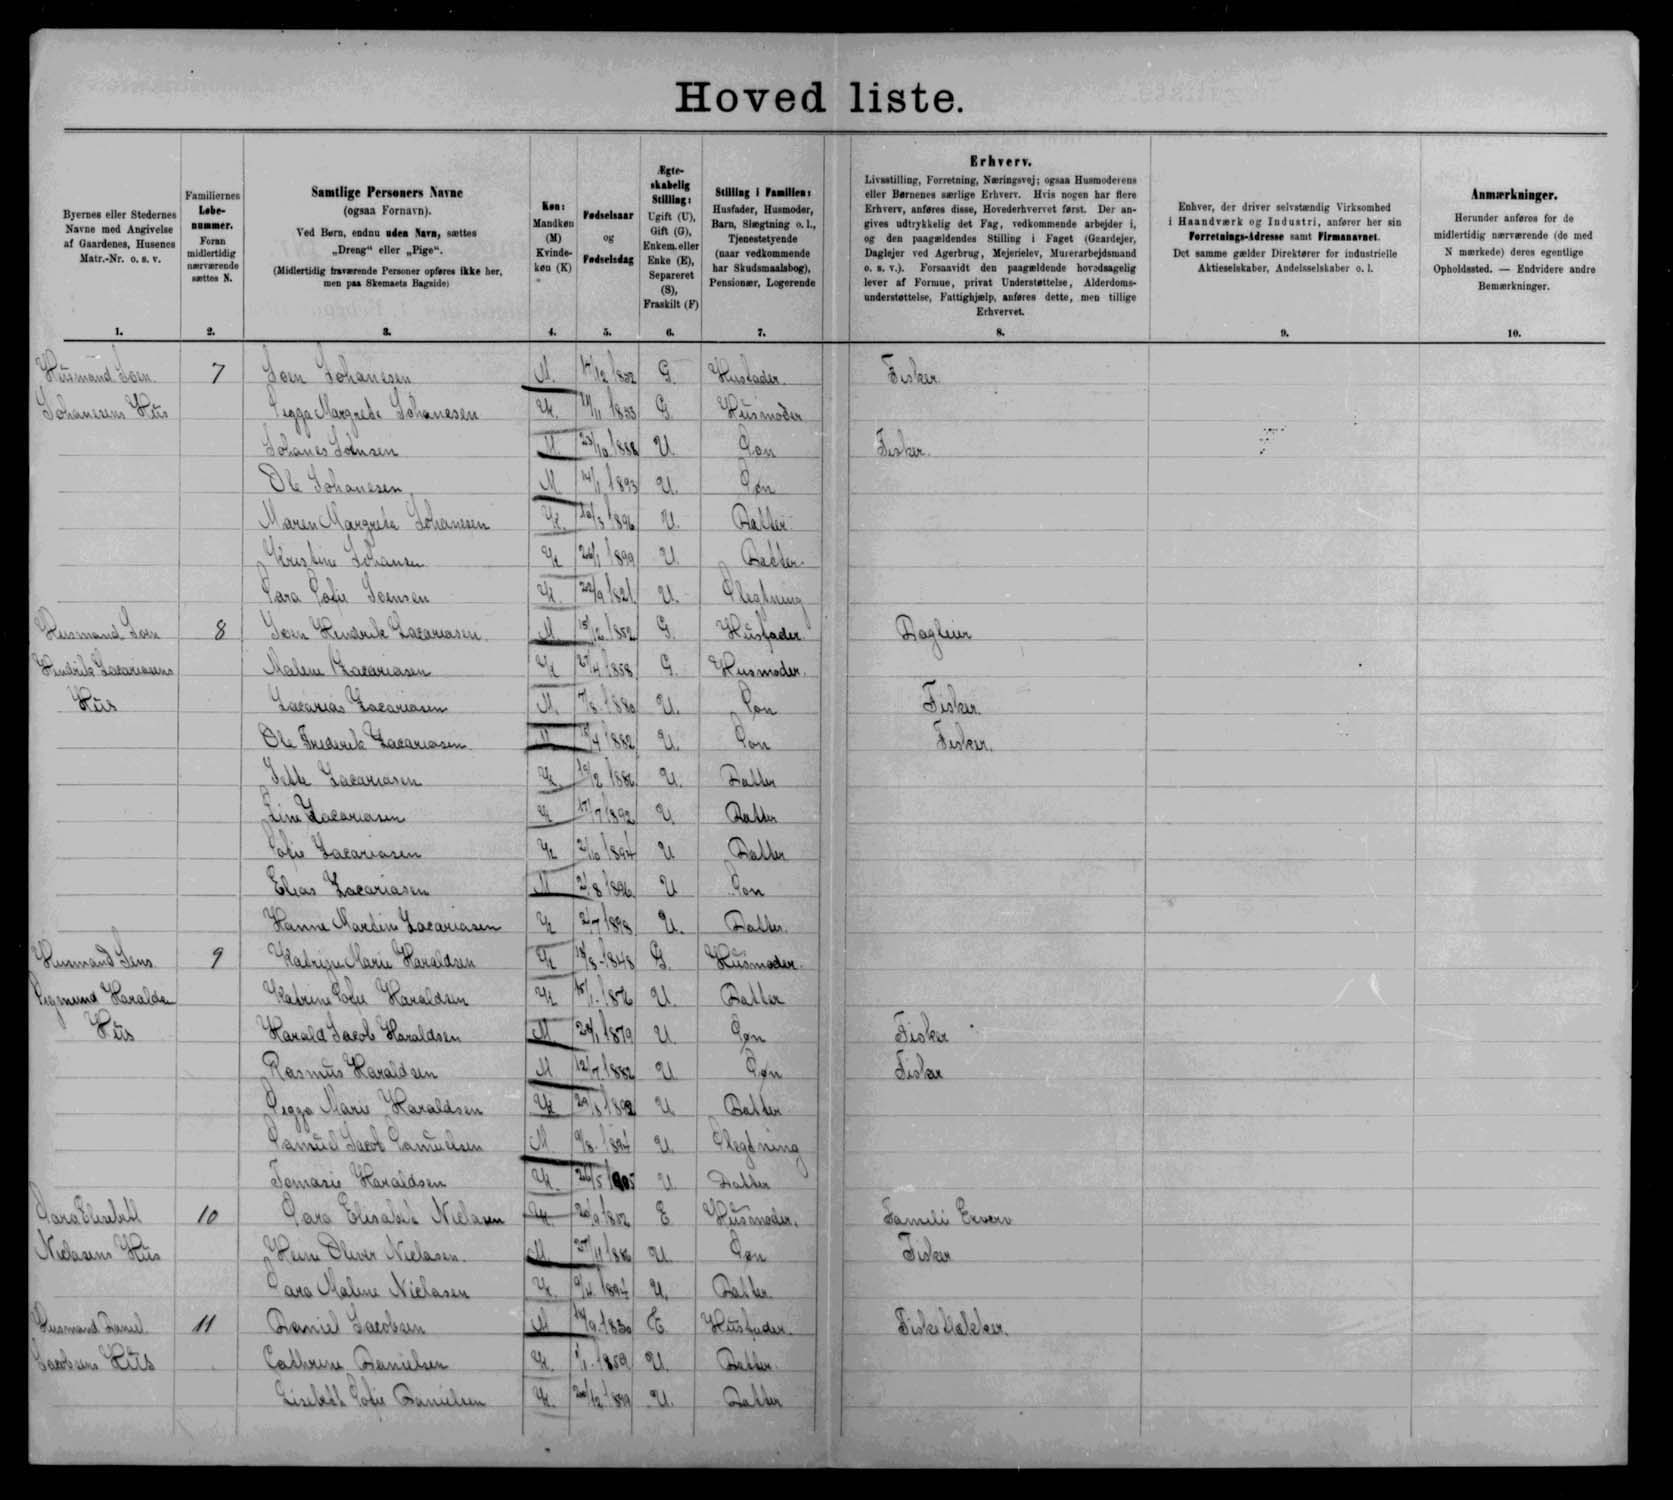 Hoved liste.
Byernes eller Stedernes Navne med Angivelse af Gaardenes, Husenes Matr.-Nr. o. s. v.
Familiernes Løbenummer. Foran midlertidig nærværende sættes N.
Samtlige Personers Navne (ogsaa Fornavn). Ved Børn, endnu uden Navn, sættes „Dreng“ eller „Pige“. (Midlertidig fraværende Personer opføres ikke her, men paa Skemaets Bagside)
Køn: Mandkøn (M) Kvindekøn (K)
Fødselsaar og Fødselsdag
Ægteskabelig Stilling: Ugift (U), Gift (G), Enkem. eller Enke (E), Separeret (S), Fraskilt (F)
Stilling i Familien: Husfader, Husmoder, Barn, Slægtning o. l., Tjenestetyende (naar vedkommende har Skudsmaalsbog), Pensionær, Logerende
Erhverv.
Livsstilling, Forretning, Næringsvej; ogsaa Husmoderens eller Børnenes særlige Erhverv. Hvis nogen har flere Erhverv, anføres disse, Hovederhvervet først. Der angives udtrykkelig det Fag, vedkommende arbejder i, og den paagældendes Stilling i Faget (Gaardejer, Daglejer ved Agerbrug, Mejerielev, Murerarbejdsmand o. s. v.). Forsaavidt den paagældende hovedsagelig lever af Formue, privat Understøttelse, Alderdomsunderstøttelse, Fattighjælp, anføres dette, men tillige Erhvervet.
Enhver, der driver selvstændig Virksomhed i Haandværk og Industri, anfører her sin Forretnings-Adresse samt Firmanavnet. Det samme gælder Direktører for industrielle Aktieselskaber, Andelsselskaber o. l.
Anmærkninger.
Herunder anføres for de midlertidig nærværende (de med N mærkede) deres egentlige Opholdssted. — Endvidere andre Bemærkninger.
1. 2. 3. 4. 5. 6. 7. 8. 9. 10.
Husmand Joen 7 Joen Johanesen M. 1852 G. Husfader. Fisker.
Johanesens Hus Sigga Margrete Johanesen K. 1853 G. Husmoder
Johanes Joensen M. U. Søn Fisker.
Ole Johanesen M 14/1 1893 U. Søn
Maren Margrete Johanesen K. 16/3 1896 U. Datter
Kristine Johansen K 26/1 1899 U. Datter
Sara Sofie Joensen K. 22/9 1821. U. Slegtning
Husmand Joen 8 Joen Hendrik Zacariasen. M. 1852 G. Husfader. Dagleier
Hendrik Zacariasens Malene Zacariasen K 27/4 1858 G. Husmoder.
Hus Zacarias Zacariasen M. 7/8 1880 U. Søn Fisker.
Ole Frederik Zacariasen M 1882 U. Søn Fisker.
Jette Zacariasen K. U. Datter
Line Zacariasen K 17/7 1892 U Datter
Sofie Zacariasen K 2/10 1894 U Datter
Elias Zacariasen M 2/8 1896 U Søn
Hanne Martine Zacariasen K 2/7 1898 U. Datter.
Husmand Jens 9 Katrine Marie Haraldsen K 18/8 1848 G. Husmoder.
Sigmund Haralds Katrine Sofie Haraldsen K 15/1 1876 U. Datter
Hus Harald Jacob Haraldsen M 1879 U. Søn Fisker
Rasmus Haraldsen M 12/7 1882 U. Søn Fisker
Sigga Marie Haraldsen K 29/8 1892 U. Datter
Samuel Jacob Samuelsen M 9/8 1894 U. Slegtning
Tomasie Haraldsen K. 26/5 1905 U. Datter
Sara Elisabeth 10 Sara Elisabet Nielasen K. 20/9 1852 E Husmoder. Famili Erverv
Nielasens Hus Heine Oliver Nielasen. M. 1886 U. Søn Fisker
Sara Malene Nielasen K. 9/4 1894 U. Datter
Husmand Daniel 11 Daniel Jacobsen M 14/9 1830 E Husfader. Fiske Vækker.
Jacobsens Hus Cathrine Danielsen K. 1/1 1859 U. Datter.
Lisebeth Sofie Danielsen K. U. Datter